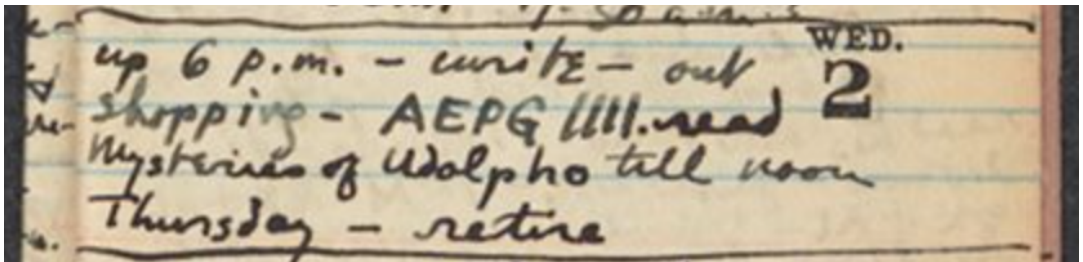 WED.
2
up 6 p.m. – write – out
shopping – AEPG IIII. read
Mysteries of Udolpho till noon
Thursday – retire